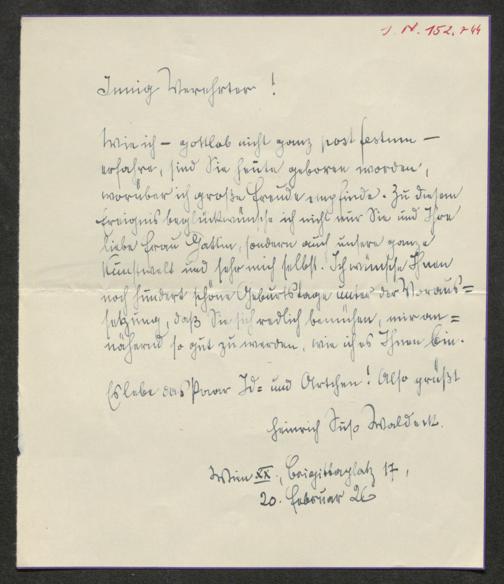 I. N. 152.744
Innig Verehrter!
Wie ich – gottlob nicht ganz post festum –
erfahre, sind Sie heute geboren worden,
worüber ich große Freude empfinde. Zu diesem
Ereignis beglückwünsche ich nicht nur Sie und Ihre
liebe Frau Gattin, sondern auch unsere ganze
Kunstwelt und sehr mich selbst. Ich wünsche Ihnen
noch hundert schöne Geburtstage unter der Voraus=
setzung, daß Sie sich redlich bemühen, mir an=
nähernd so gut zu werden, wie ich es Ihnen bin.
Es lebe das Paar Id= und Artchen! Also grüßt
Heinrich Suso Waldeck.
Wien XX., Brigittaplatz 17,
20. Februar 26